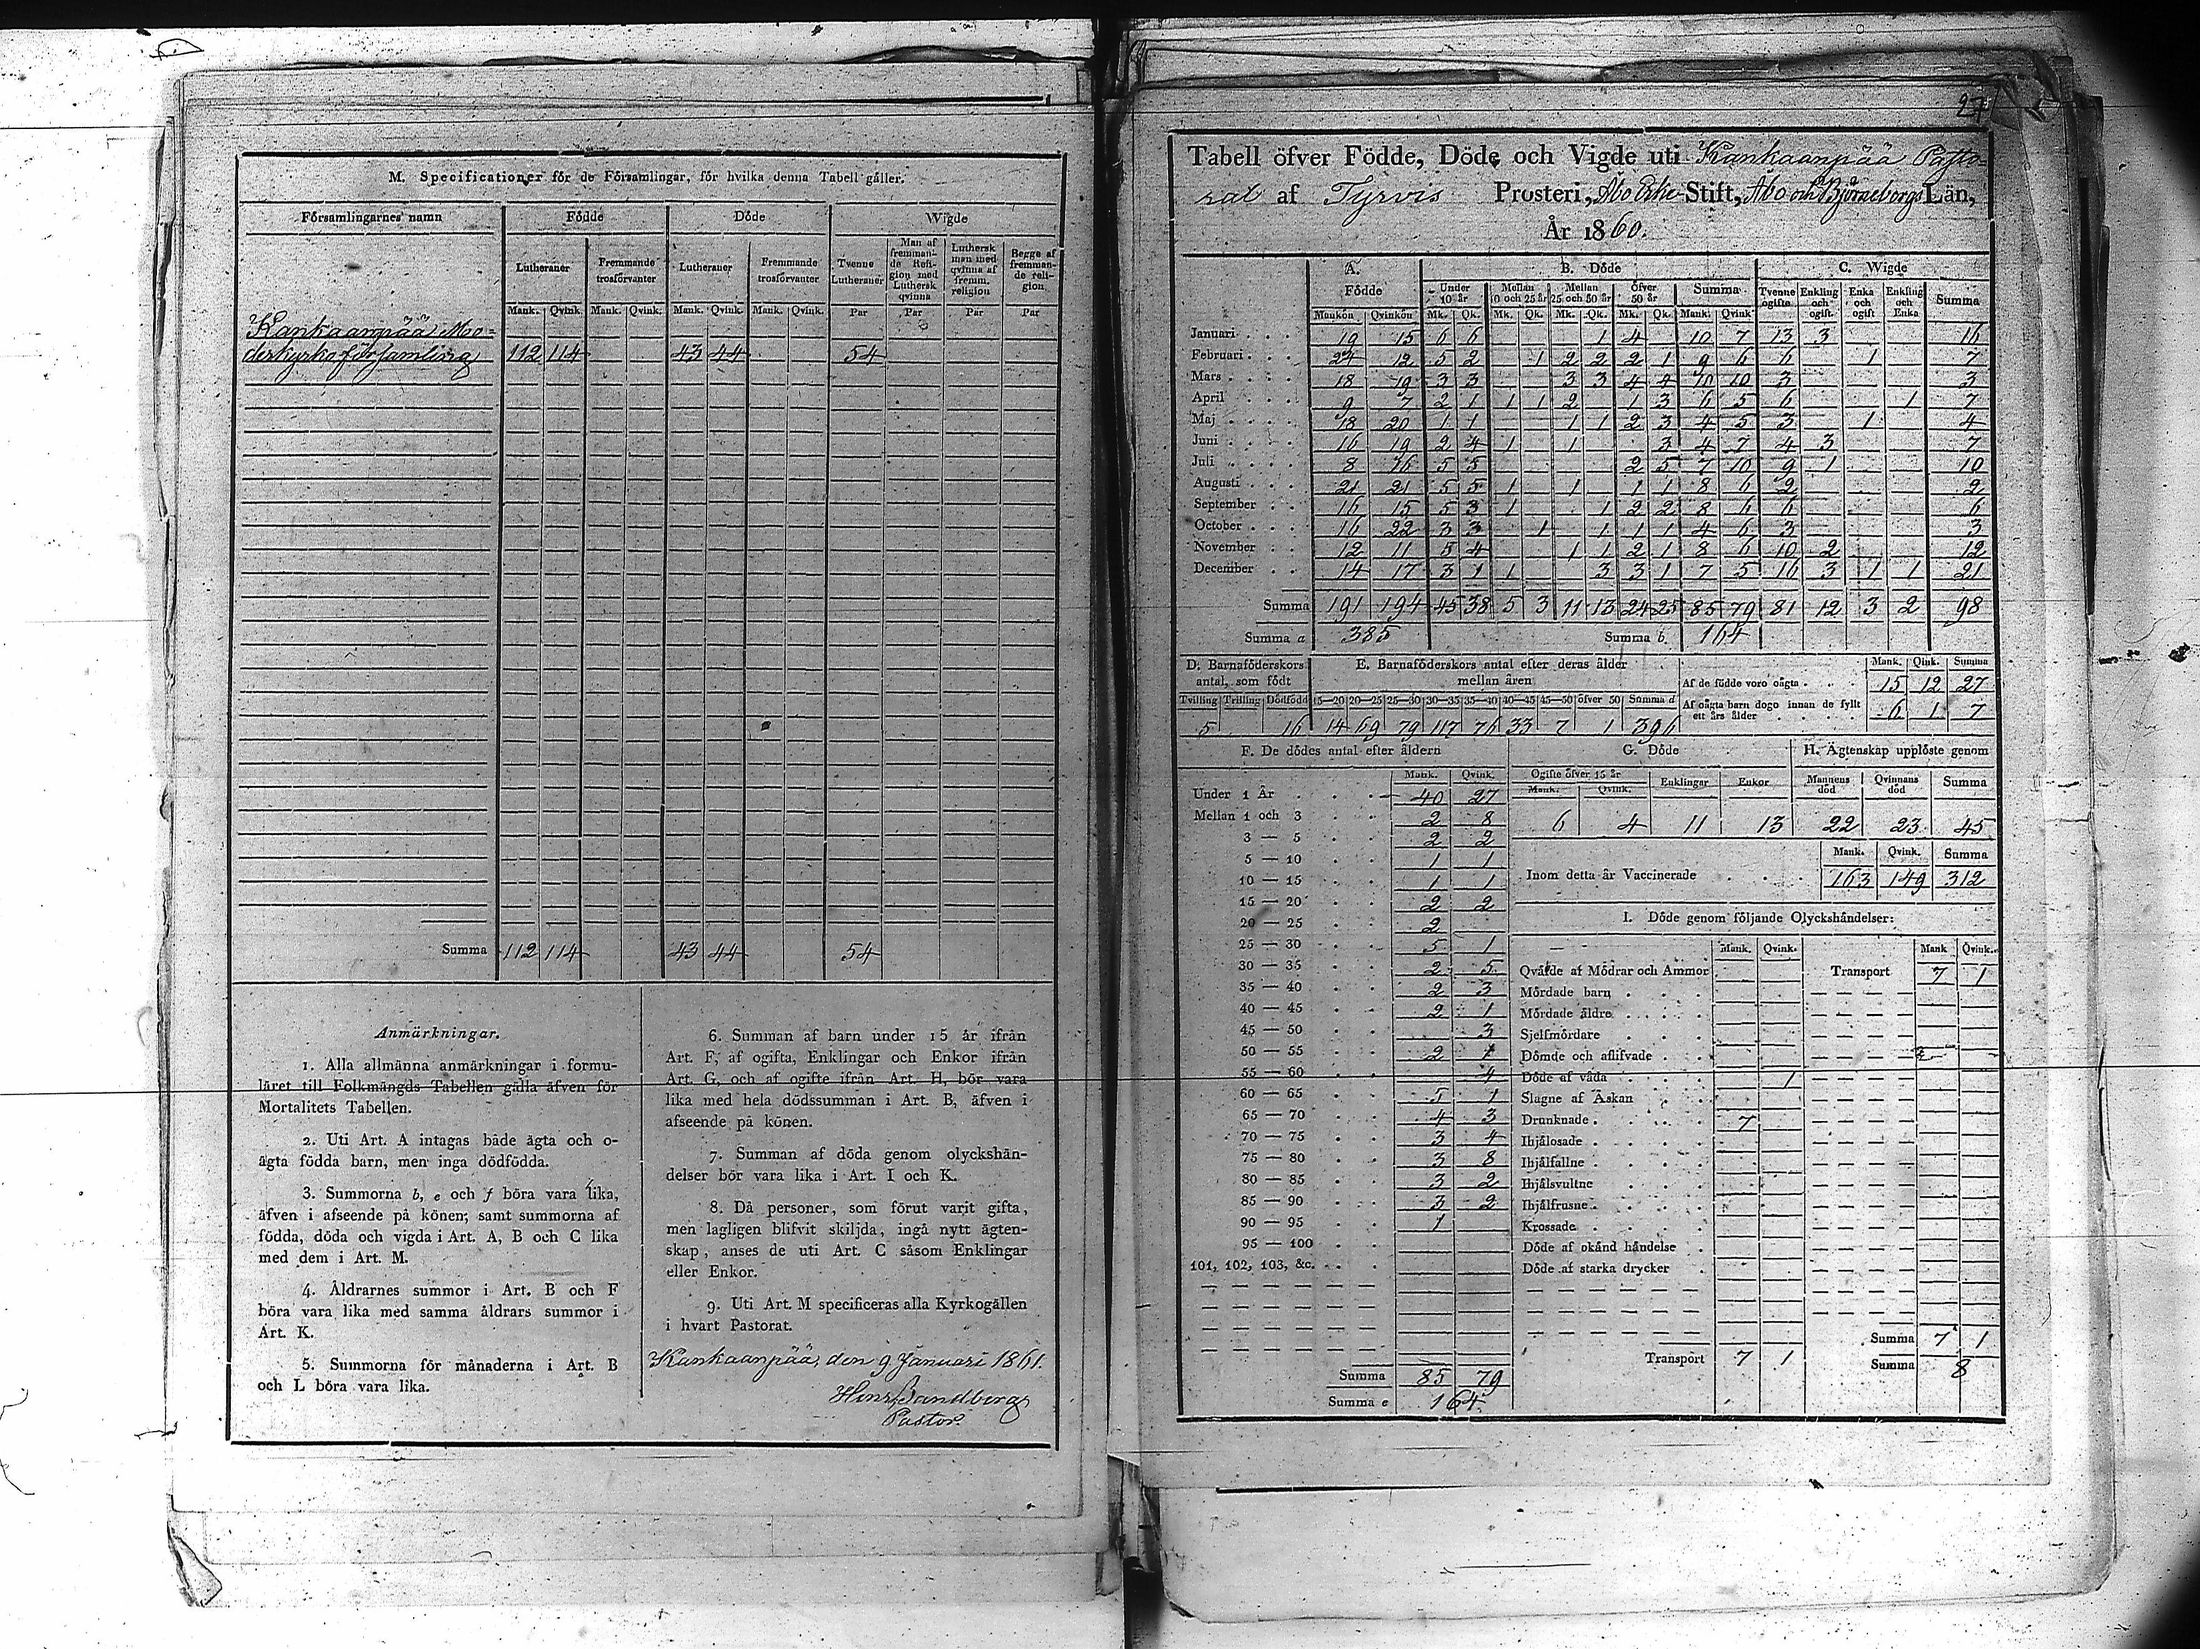 M. Specificationer för de Församlingar, för hvilka denna Tabell gäller.
Församlingarnes namn Födde Döde Wigde
Lutheraner Fremmande trosförvanter Lutheraner Fremmande trosförvanter Tvenne Lutheraner Man af fremmande Religion med Luthersk qvinna Luthersk man med qvinna af fremm. religion Begge af fremmande religion
Mank. Qvink. Mank. Qvink. Mank. Qvink. Mank. Qvink. Par Par Par Par
Kankaanpää Mo-
derkyrko församling 112 114 43 44 54
Summa 112 114 43 44 54
Anmärkningar.
1. Alla allmänna anmärkningar i formu-
läret till Folkmängds Tabellen gälla äfven för
Mortalitets Tabellen.
2. Uti Art. A intagas både ägta och o-
ägta födda barn, men inga dödfödda.
3. Summorna b, e och f böra vara lika,
äfven i afseende på könen; samt summorna af
födda, döda och vigda i Art. A, B och C lika
med dem i Art. M.
4. Åldrarnes summor i Art. B och F
böra vara lika med samma åldrars summor i
Art. K.
5. Summorna för månaderna i Art. B
och L böra vara lika.
6. Summan af barn under 15 år ifrån
Art. F, af ogifta, Enklingar och Enkor ifrån
Art. G, och af ogifte ifrån Art. H, bör vara
lika med hela dödssumman i Art. B, äfven i
afseende på könen.
7. Summan af döda genom olyckshän-
delser bör vara lika i Art. I och K.
8. Då personer, som förut varit gifta,
men lagligen blifvit skiljda, ingå nytt ägten-
skap, anses de uti Art. C såsom Enklingar
eller Enkor.
9. Uti Art. M specificeras alla Kyrkogällen
i hvart Pastorat.
Kankaanpää, den 9 Januari 1861.
Henr. Sandberg
Pastor.
27
Tabell öfver Födde, Döde och Vigde uti Kankaanpää Pasto-
rat af Tyrvis Prosteri, Åbo Erke Stift, Åbo och Björneborgs Län,
År 1860.
A. Födde B. Döde C. Wigde
Under 10 år Mellan 10 och 25 år Mellan 25 och 50 år Öfver 50 år Summa Tvenne ogifte Enkling och ogift. Enka och ogift Enkling och Enka Summa
Mankön Qvinkön Mk. Qk. Mk. Qk. Mk. Qk. Mk. Qk. Mank. Qvink.
Januari 19 15 6 6 1 4 10 7 13 3 16
Februari 24 12 5 2 1 2 2 2 1 9 6 6 1 7
Mars 18 19 3 3 3 3 4 4 10 10 3 3
April 9 7 2 1 1 1 2 1 3 6 5 6 1 7
Maj 18 20 1 1 1 1 2 3 4 5 3 1 4
Juni 16 19 2 4 1 1 3 4 7 4 3 7
Juli 8 16 5 5 2 5 7 10 9 1 10
Augusti 21 21 5 5 1 1 1 1 8 6 2 2
September 16 15 5 3 1 1 2 2 8 6 6 6
October 16 22 3 3 1 1 1 1 4 6 3 3
November 12 11 5 4 1 1 2 1 8 6 10 2 12
December 14 17 3 1 1 3 3 1 7 5 16 3 1 1 21
Summa 191 194 45 38 5 3 11 13 24 25 85 79 81 12 3 2 98
Summa a 385 Summa b. 164
D. Barnaföderskors antal, som födt
Tvilling Trilling Dödfödd
5 16
E. Barnaföderskors antal efter deras ålder mellan åren
15—20 20—25 25—30 30—35 35—40 40—45 45—50 öfver 50 Summa d
14 69 79 117 76 33 7 1 396
Mank. Qink. Summa
Af de födde voro oägta 15 12 27
Af oägta barn dogo innan de fyllt
ett års ålder 6 1 7
F. De dödes antal efter åldern
Mank. Qvink.
Under 1 År 40 27
Mellan 1 och 3 2 8
3 — 5 2 2
5 — 10 1 1
10 — 15 1 1
15 — 20 2 2
20 — 25 2
25 — 30 5 1
30 — 35 2 5
35 — 40 2 3
40 — 45 2 1
45 — 50 3
50 — 55 2 1
55 — 60 4
60 — 65 5 1
65 — 70 4 3
70 — 75 3 4
75 — 80 3 8
80 — 85 3 2
85 — 90 3 2
90 — 95 1
95 — 100
101, 102, 103, &c.
Summa 85 79
Summa e 164
G. Döde
Ogifte öfver 15 år Enklingar Enkor
Mank. Qvink.
6 4 11 13
H. Ägtenskap upplöste genom
Mannens död Qvinnans död Summa
22 23 45
Mank. Qvink. Summa
Inom detta år Vaccinerade 163 149 312
I. Döde genom följande Olyckshändelser:
Mank. Qvink. Mank Qvink.
Qväfde af Mödrar och Ammor Transport 7 1
Mördade barn
Mördade äldre
Sjelfmördare
Dömde och aflifvade
Döde af våda 1
Slagne af Åskan
Drunknade 7
Ihjälosade
Ihjälfallne
Ihjälsvultne
Ihjälfrusne
Krossade
Döde af okänd händelse
Döde af starka drycker
Summa 7 1
Transport 7 1 Summa 8